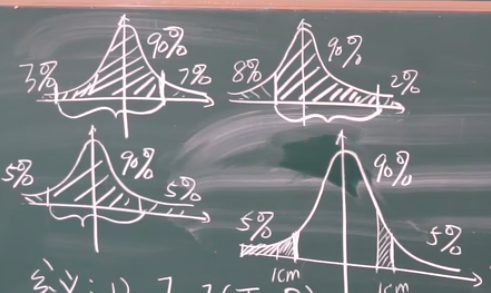 3% 90% 7%
8% 90% 2%
5% 90% 5%
5% 90% 5%
1cm 1cm